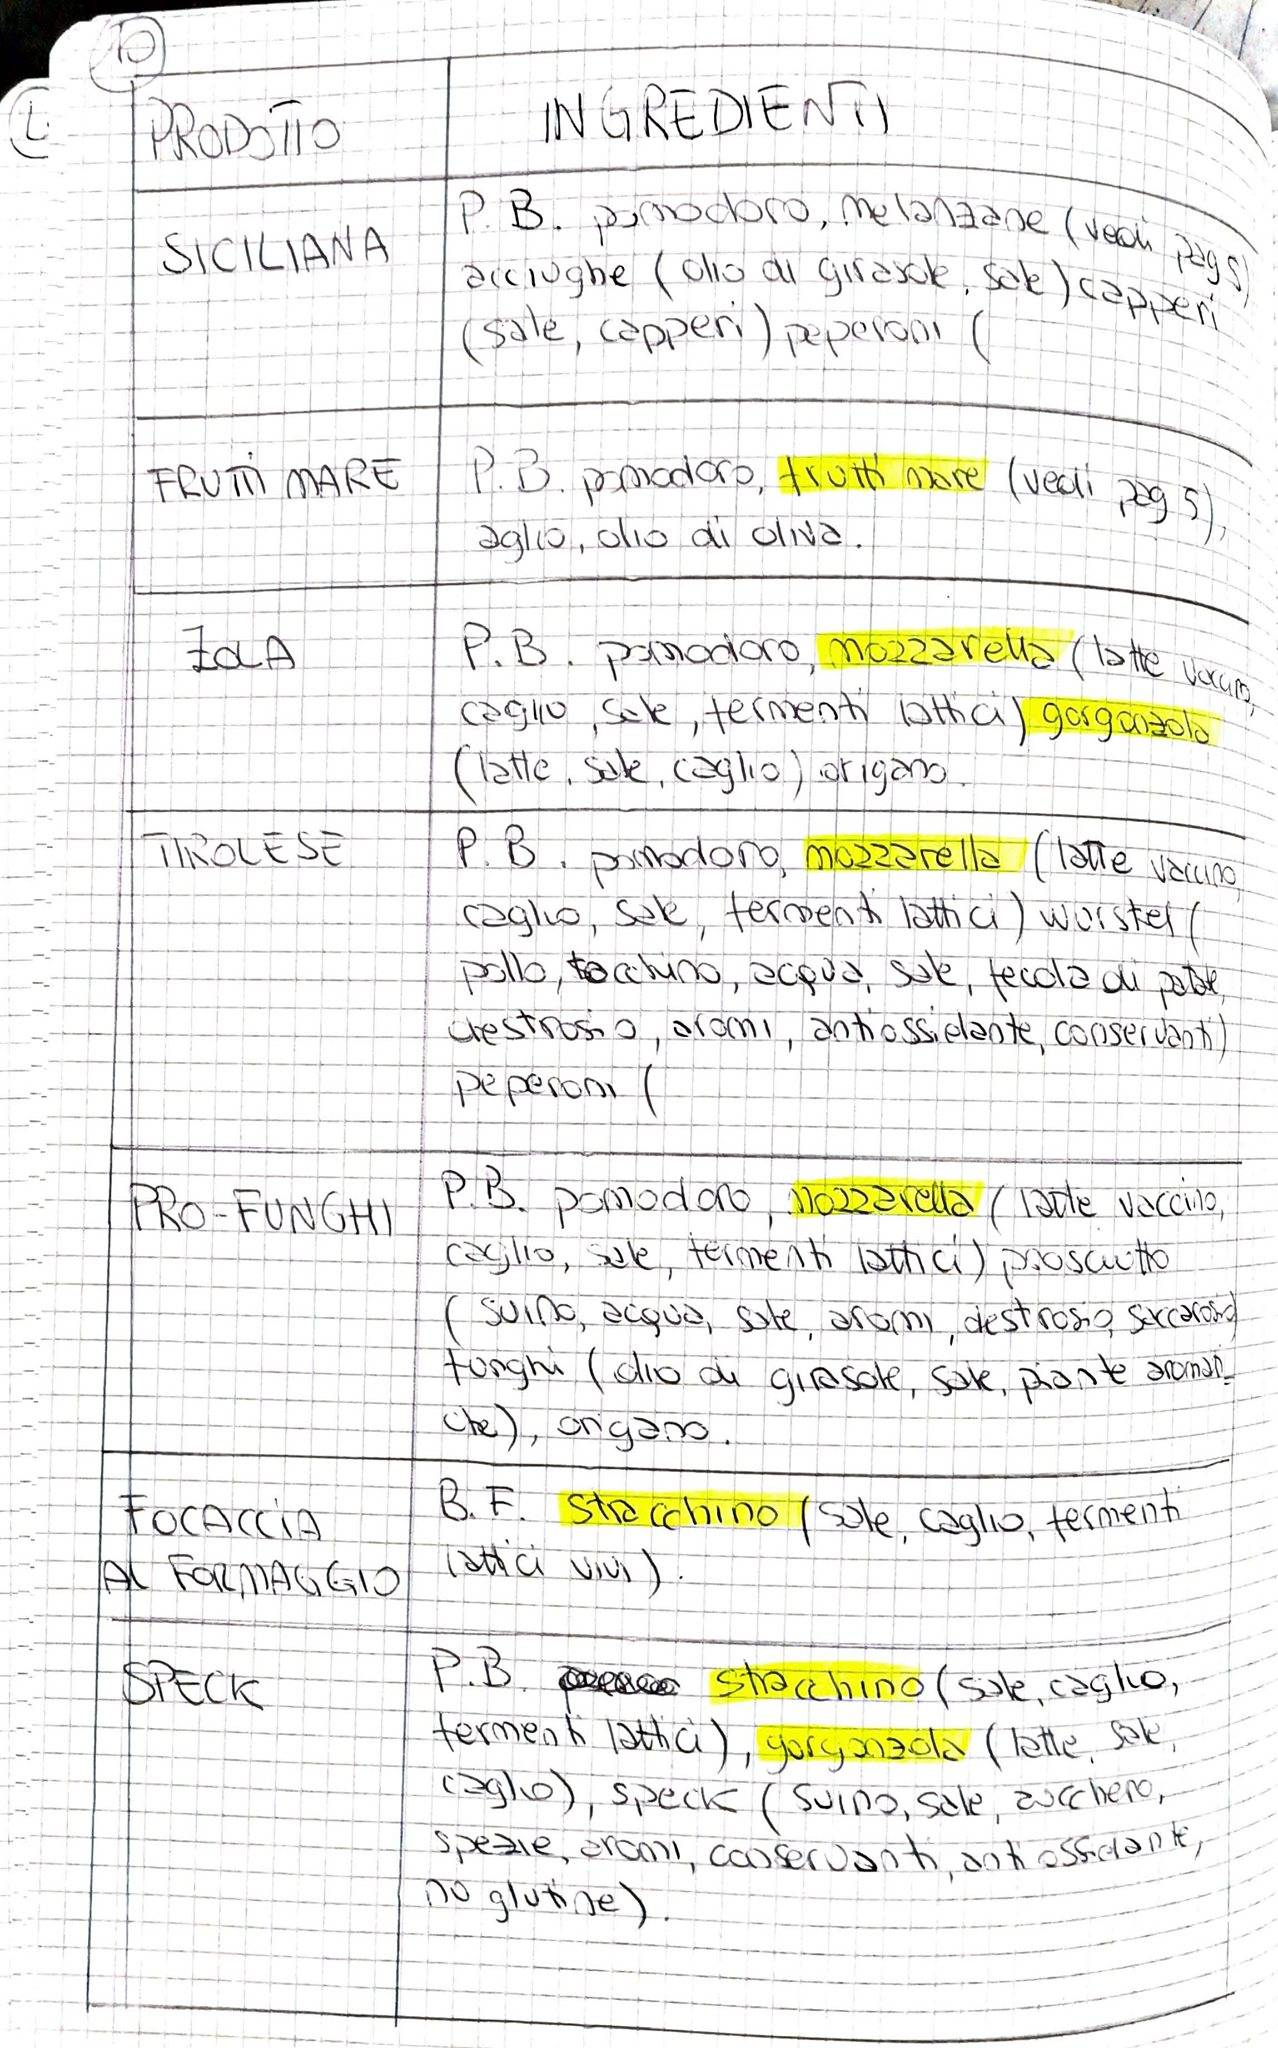 10
L
PRODOTTO INGREDIENTI
SICILIANA
P.B. pomodoro, melanzane (vedi pag 5)
acciughe (olio di girasole, sale) capperi
(sale, capperi) peperoni (
FRUTTI MARE
P.B. pomodoro, frutti mare (vedi pag 5),
aglio, olio di oliva.
ZOLA
P.B. pomodoro, mozzarella (latte vaccino,
caglio, sale, fermenti lattici) gorgonzola
(latte, sale, caglio) origano.
TIROLESE
P.B. pomodoro, mozzarella (latte vaccino,
caglio, sale, fermenti lattici) wurstel (
pollo, tacchino, acqua, sale, fecola di patate,
destrosio, aromi, antiossidante, conservanti)
peperoni (
PRO-FUNGHI
P.B. pomodoro, mozzarella (latte vaccino,
caglio, sale, fermenti lattici) prosciutto
(suino, acqua, sale, aromi, destrosio, saccarosio)
funghi (olio di girasole, sale, piante aromati-
che), origano.
FOCACCIA
AL FORMAGGIO
B.F. stracchino (sale, caglio, fermenti
lattici vivi).
SPECK
P.B. stracchino (sale, caglio,
fermenti lattici), gorgonzola (latte, sale,
caglio), speck (suino, sale, zucchero,
spezie, aromi, conservanti, antiossidante,
no glutine).